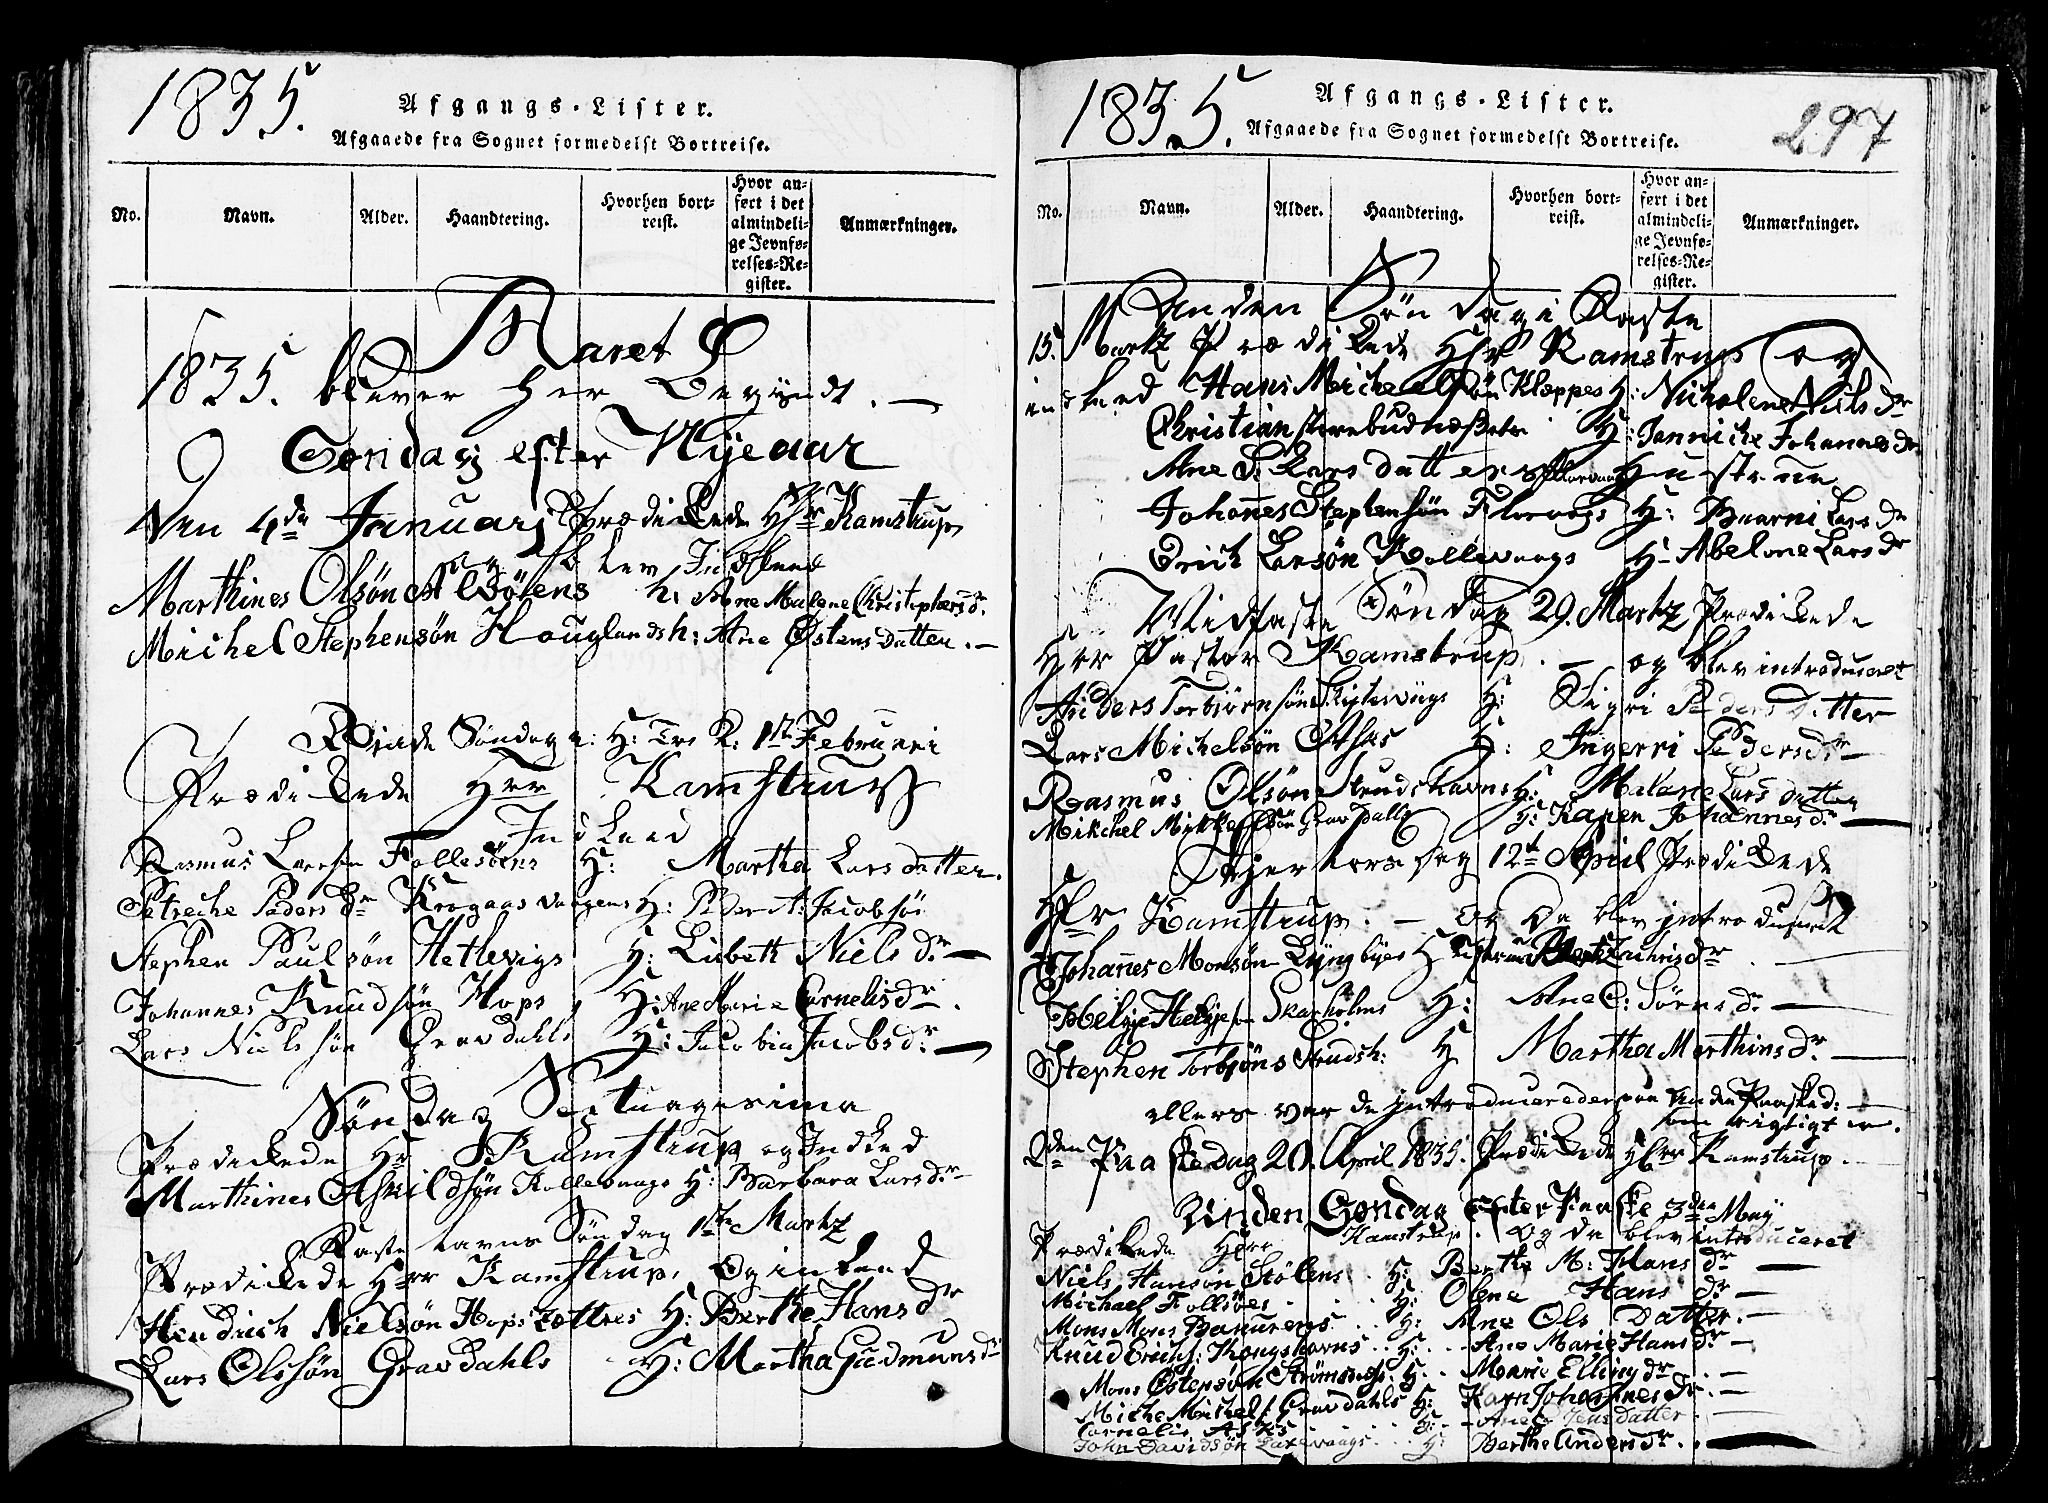 1835.
Afgangs-Lister.
Afgaaede fra Sognet formedelst Bortreise.
No.
Navn.
Alder.
Haandtering.
Hvorhen bort-
reist.
Hvor an-
ført i det
almindeli-
ge Jevnfø-
relses-Re-
gister.
Anmærkninger.
Aaret
1835. blever her Begyndt. —
Søndag efter Nyeaar
Den 4de Januarj Prædikede Hr Kamstrup
og blev Indleed
Marthines Olsøn Solens h: Ane Malene Christophersdr.
Michel Stephensøn Houglands h: Ane Østens Datter. —
Søndag H: Tre K: 1te Februari
Prædikede Herr Kamstrup
Indleed
Rasmus Larsen Follesøens H: Martha Lars datter.
Petreche Peders dr Krogaasvaagens H: Peder A: Jacobsøn
Stephen Paulsøn Hetlevigs H: Lisbeth Niels dr. —
Johannes Knudsøn Hops H: Ane Marie Cornelis dr.
Lars Nielssøn Gravdahls H: Jacobin Jacobs dr. —
Søndag Septuagesima
Prædikede Hr Kamstrup og Indled
Marthines Askildsøn Kollevaags H: Barbara Lars dr. —
Fastelavns Søndag 1te Martz
Prædikede Herr Kamstrup. Og inleed
Hendrich Nielsøn Hops H: Berthe Hans dr
Lars Olssøn Gravdahls H: Martha Gudmunsdr
1835.
Afgangs-Lister.
Afgaaede fra Sognet formedelst Bortreise.
297
No.
Navn.
Alder.
Haandtering.
Hvorhen bort-
reist.
Hvor an-
ført i det
almindeli-
ge Jevnfø-
relses-Re-
gister.
Anmærkninger.
Anden Søndag i Faste
15. Martz Prædikede Hr Kamstrup og
inleed Hans Michelsøn Kleppes H: Nicholene Niels dr
Christian H: Janniche Johannes dr
Ane S: Lars datter Hustrue
Johanes Stephensøn Florvaags H: Lars dr
Erich Larsøn Kollevaags H- Abelone Lars dr
Midfaste Søndag 29. Martz Prædikede
Herr Pastor Kamstrup. — og blev introduceret
Anders Torbiørnsøn H: Sigri Peders Datter
Lars Michelsøn H: Ingerri Pedersdr —
Rasmus Olsøn Strudshavns H: Malane Lars datter
Mikchel Mikkelsøn Gravdalls H: Karen Johannes dr —
Skjertorsdag 12te April Prædikede
Hr Kamstrup. — Og Da blev introduceret
Johannes Monsøn Lyngbyes H
Helgje Helgjesøn Skarholms H: Ane C: Sørns dr —
Stephen Torbjøns Strudsh: H Martha Marthins dr. —
ellers var de introducerede Anden Paasked: —
som rigtigt er.
2den Paaskedag 20. April 1835. Prædikede Herr Kamstrup.
Anden Søndag Efter Paaske 3die May
Prædikede Herr Kamstrup. Og da blev introduceret
Niels Hansøn Stølens . H: Berthe M: Hans dr —
Michael Follsøes . . . H: Olene Hans dr. —
Mons Mons . . H: Ane Ols Datter. —
Knud Erichs: Kongshavns . . H: . . Ane Marie Hans dr —
Mons Østensøn Strømsnes . H: . . Marie Elling dr . —
Miche Michels: Gravdahls H: Karn Johannes dr. —
Cornelis Asks . . . H: - Ane Jens Datter.
John Davidsøn . . H: Berthe Anders dr . . —